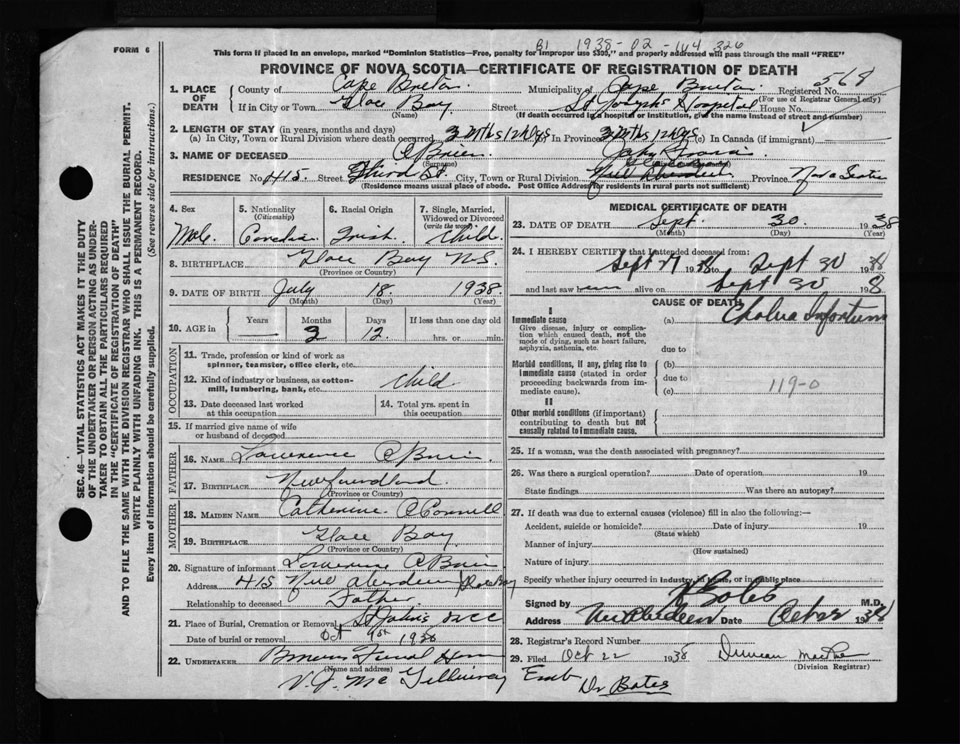 FORM 6
B1 1938-02-104326
This form if placed in an envelope, marked "Dominion Statistics—Free, penalty for improper use $300," and properly addressed will pass through the mail "FREE"
PROVINCE OF NOVA SCOTIA—CERTIFICATE OF REGISTRATION OF DEATH
1. PLACE OF DEATH County of Cape Breton Municipality of Cape Breton Registered No. 568
(For use of Registrar General only)
If in City or Town Glace Bay Street St Josephs Hospital House No.
(Name) (If death occurred in a hospital or institution, give the name instead of street and number)
2. LENGTH OF STAY (in years, months and days)
(a) In City, Town or Rural Division where death occurred 2 mths 12 dys (b) In Province 2 mths 12 dys (c) In Canada (if immigrant)
3. NAME OF DECEASED O'Brien John
(Surname)
RESIDENCE No. 415 Street Third St City, Town or Rural Division New Aberdeen Province Nova Scotia
(Residence means usual place of abode. Post Office Address for residents in rural parts not sufficient)
4. Sex Male
5. Nationality (Citizenship)
6. Racial Origin Irish
7. Single, Married, Widowed or Divorced (write the word) Child
8. BIRTHPLACE Glace Bay N.S.
(Province or Country)
9. DATE OF BIRTH July 18 1938
(Month) (Day) (Year)
10. AGE in Years Months Days If less than one day old
2 12 hrs. or min.
OCCUPATION
11. Trade, profession or kind of work as spinner, teamster, office clerk, etc.
12. Kind of industry or business, as cotton-mill, lumbering, bank, etc. Child
13. Date deceased last worked at this occupation
14. Total yrs. spent in this occupation
15. If married give name of wife or husband of deceased
FATHER
16. NAME Lawrence O'Brien
17. BIRTHPLACE Newfoundland
(Province or Country)
MOTHER
18. MAIDEN NAME Catherine O'Connell
19. BIRTHPLACE Glace Bay
(Province or Country)
20. Signature of informant Lawrence O'Brien
Address 415 New Aberdeen Glace Bay
Relationship to deceased Father
21. Place of Burial, Cremation or Removal St Johns
Date of burial or removal Oct 1938
22. UNDERTAKER Funeral Home
(Name and address)
V. J. McGillivray Emb
MEDICAL CERTIFICATE OF DEATH
23. DATE OF DEATH Sept. 30 1938
(Month) (Day) (Year)
24. I HEREBY CERTIFY that I attended deceased from:
Sept 27 1938 to Sept 30 1938
and last saw h alive on Sept 30 1938
CAUSE OF DEATH
I
Immediate cause (a) Cholera Infantum
Give disease, injury or complication which caused death, not the mode of dying, such as heart failure, asphyxia, asthenia, etc.
due to
Morbid conditions, if any, giving rise to immediate cause (stated in order proceeding backwards from immediate cause).
(b)
due to
(c)
119-0
II
Other morbid conditions (if important) contributing to death but not causally related to immediate cause.
25. If a woman, was the death associated with pregnancy?
26. Was there a surgical operation? Date of operation 19
State findings Was there an autopsy?
27. If death was due to external causes (violence) fill in also the following:—
Accident, suicide or homicide? Date of injury 19
(State which)
Manner of injury
(How sustained)
Nature of injury
Specify whether injury occurred in industry, in home, or in public place
Signed by M.D.
Address New Aberdeen Date Oct 1938
28. Registrar's Record Number
29. Filed Oct 22 1938 Duncan
(Division Registrar)
Dr Bates
SEC. 46—VITAL STATISTICS ACT MAKES IT THE DUTY OF THE UNDERTAKER OR PERSON ACTING AS UNDERTAKER TO OBTAIN ALL THE PARTICULARS REQUIRED IN THE "CERTIFICATE OF REGISTRATION OF DEATH" AND TO FILE THE SAME WITH THE DIVISION REGISTRAR WHO SHALL ISSUE THE BURIAL PERMIT.
WRITE PLAINLY WITH UNFADING INK. THIS IS A PERMANENT RECORD.
Every item of information should be carefully supplied. (See reverse side for instructions.)